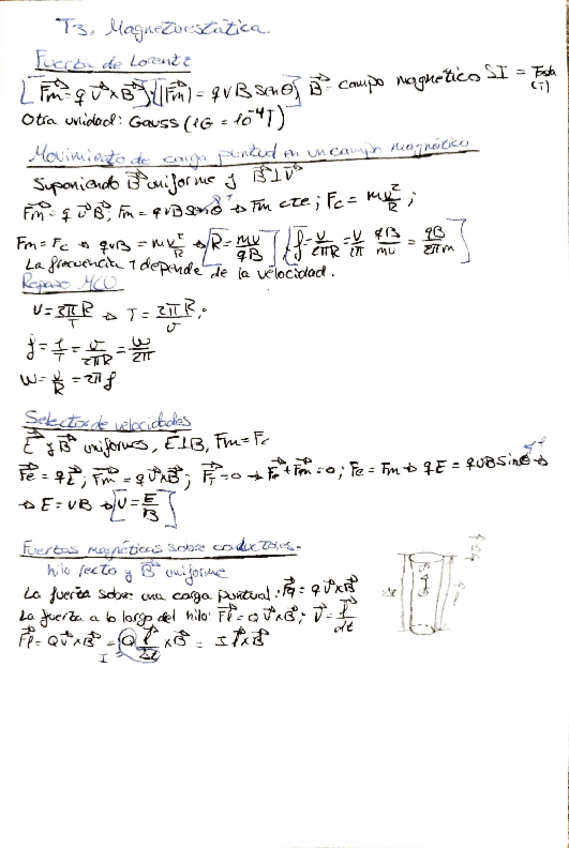 T3. Magnetoestática.
Fuerza de Lorentz
[F⃗m = q v⃗ x B⃗]; [|F⃗m| = q v B senθ] B⃗ = campo magnético SI = Tesla (T)
Otra unidad: Gauss (1G = 10⁻⁴T)
Movimiento de carga puntual en un campo magnético
Suponiendo B⃗ uniforme y B⃗⊥v⃗
F⃗m = q v⃗ B⃗; Fm = qvB senθ → Fm cte; Fc = m v²/R;
Fm = Fc → qvB = m v²/R → [R = mv/qB] [f = v/2πR = v/2π qB/mv = qB/2πm]
La frecuencia 1 depende de la velocidad.
Repaso MCU
v = 2πR/T → T = 2πR/v;
f = 1/T = v/2πR = w/2π
w = v/R = 2πf
Selector de velocidades
E⃗ y B⃗ uniformes, E⊥B, Fm = Fc
F⃗e = qE⃗; F⃗m = q v⃗xB⃗; F⃗t = 0 → F⃗e + F⃗m = 0; Fe = Fm → qE = qvB senθ →
→ E = vB → [v = E/B]
Fuerzas magnéticas sobre conductores.
hilo recto y B⃗ uniforme
La fuerza sobre una carga puntual: F⃗q = q v⃗xB⃗
La fuerza a lo largo del hilo: F⃗l = Q v⃗xB⃗; v⃗ = l⃗/dt
F⃗l = Q v⃗xB⃗ = Q l⃗/Δt xB⃗ = I l⃗xB⃗
I =